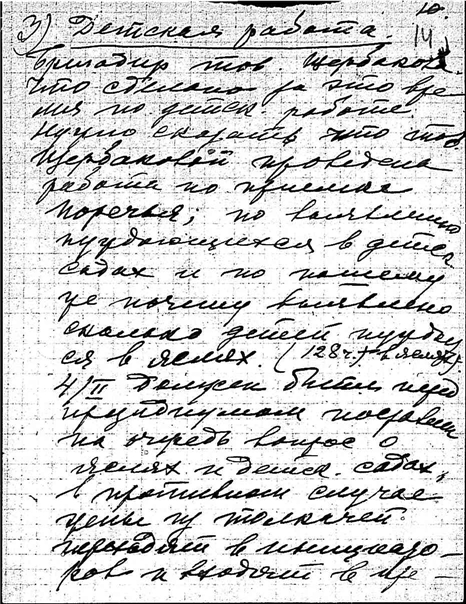 10.
14
3) Детская работа.
Бригадир тов Щербакова.
Что сделано за это вре
мя по детск. работе.
Нужно сказать что тов
Щербаковой проведена
работа по
по выявлению
нуждающихся в детск
садах и по нашему
же почину выявлено
сколько детей нуждает
ся в яслях. (128 ч.) в яслях)
4/II Должен быть перед
президиумом поставлен
на очередь вопрос о
яслях и детск. садах,
в противном случае
из толкачей
переходят в
и входят в пре-